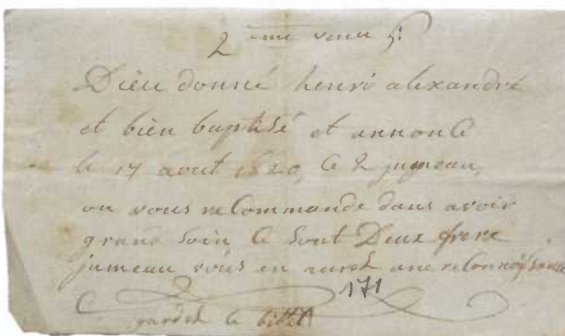 2 eme venu
Dieu donné henri alexandre
et bien baptisé et annoncé
le 17 aout 1820, le 2 jumeau,
on vous recommande dans avoir
grand soin Ce sont Deux frere
jumeau vous en aurez une reconnoissance
171
gardez le billet